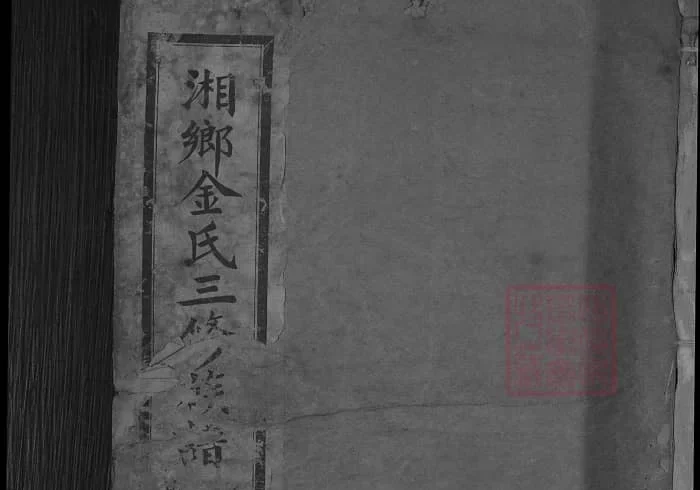 湘鄉金氏三修族譜